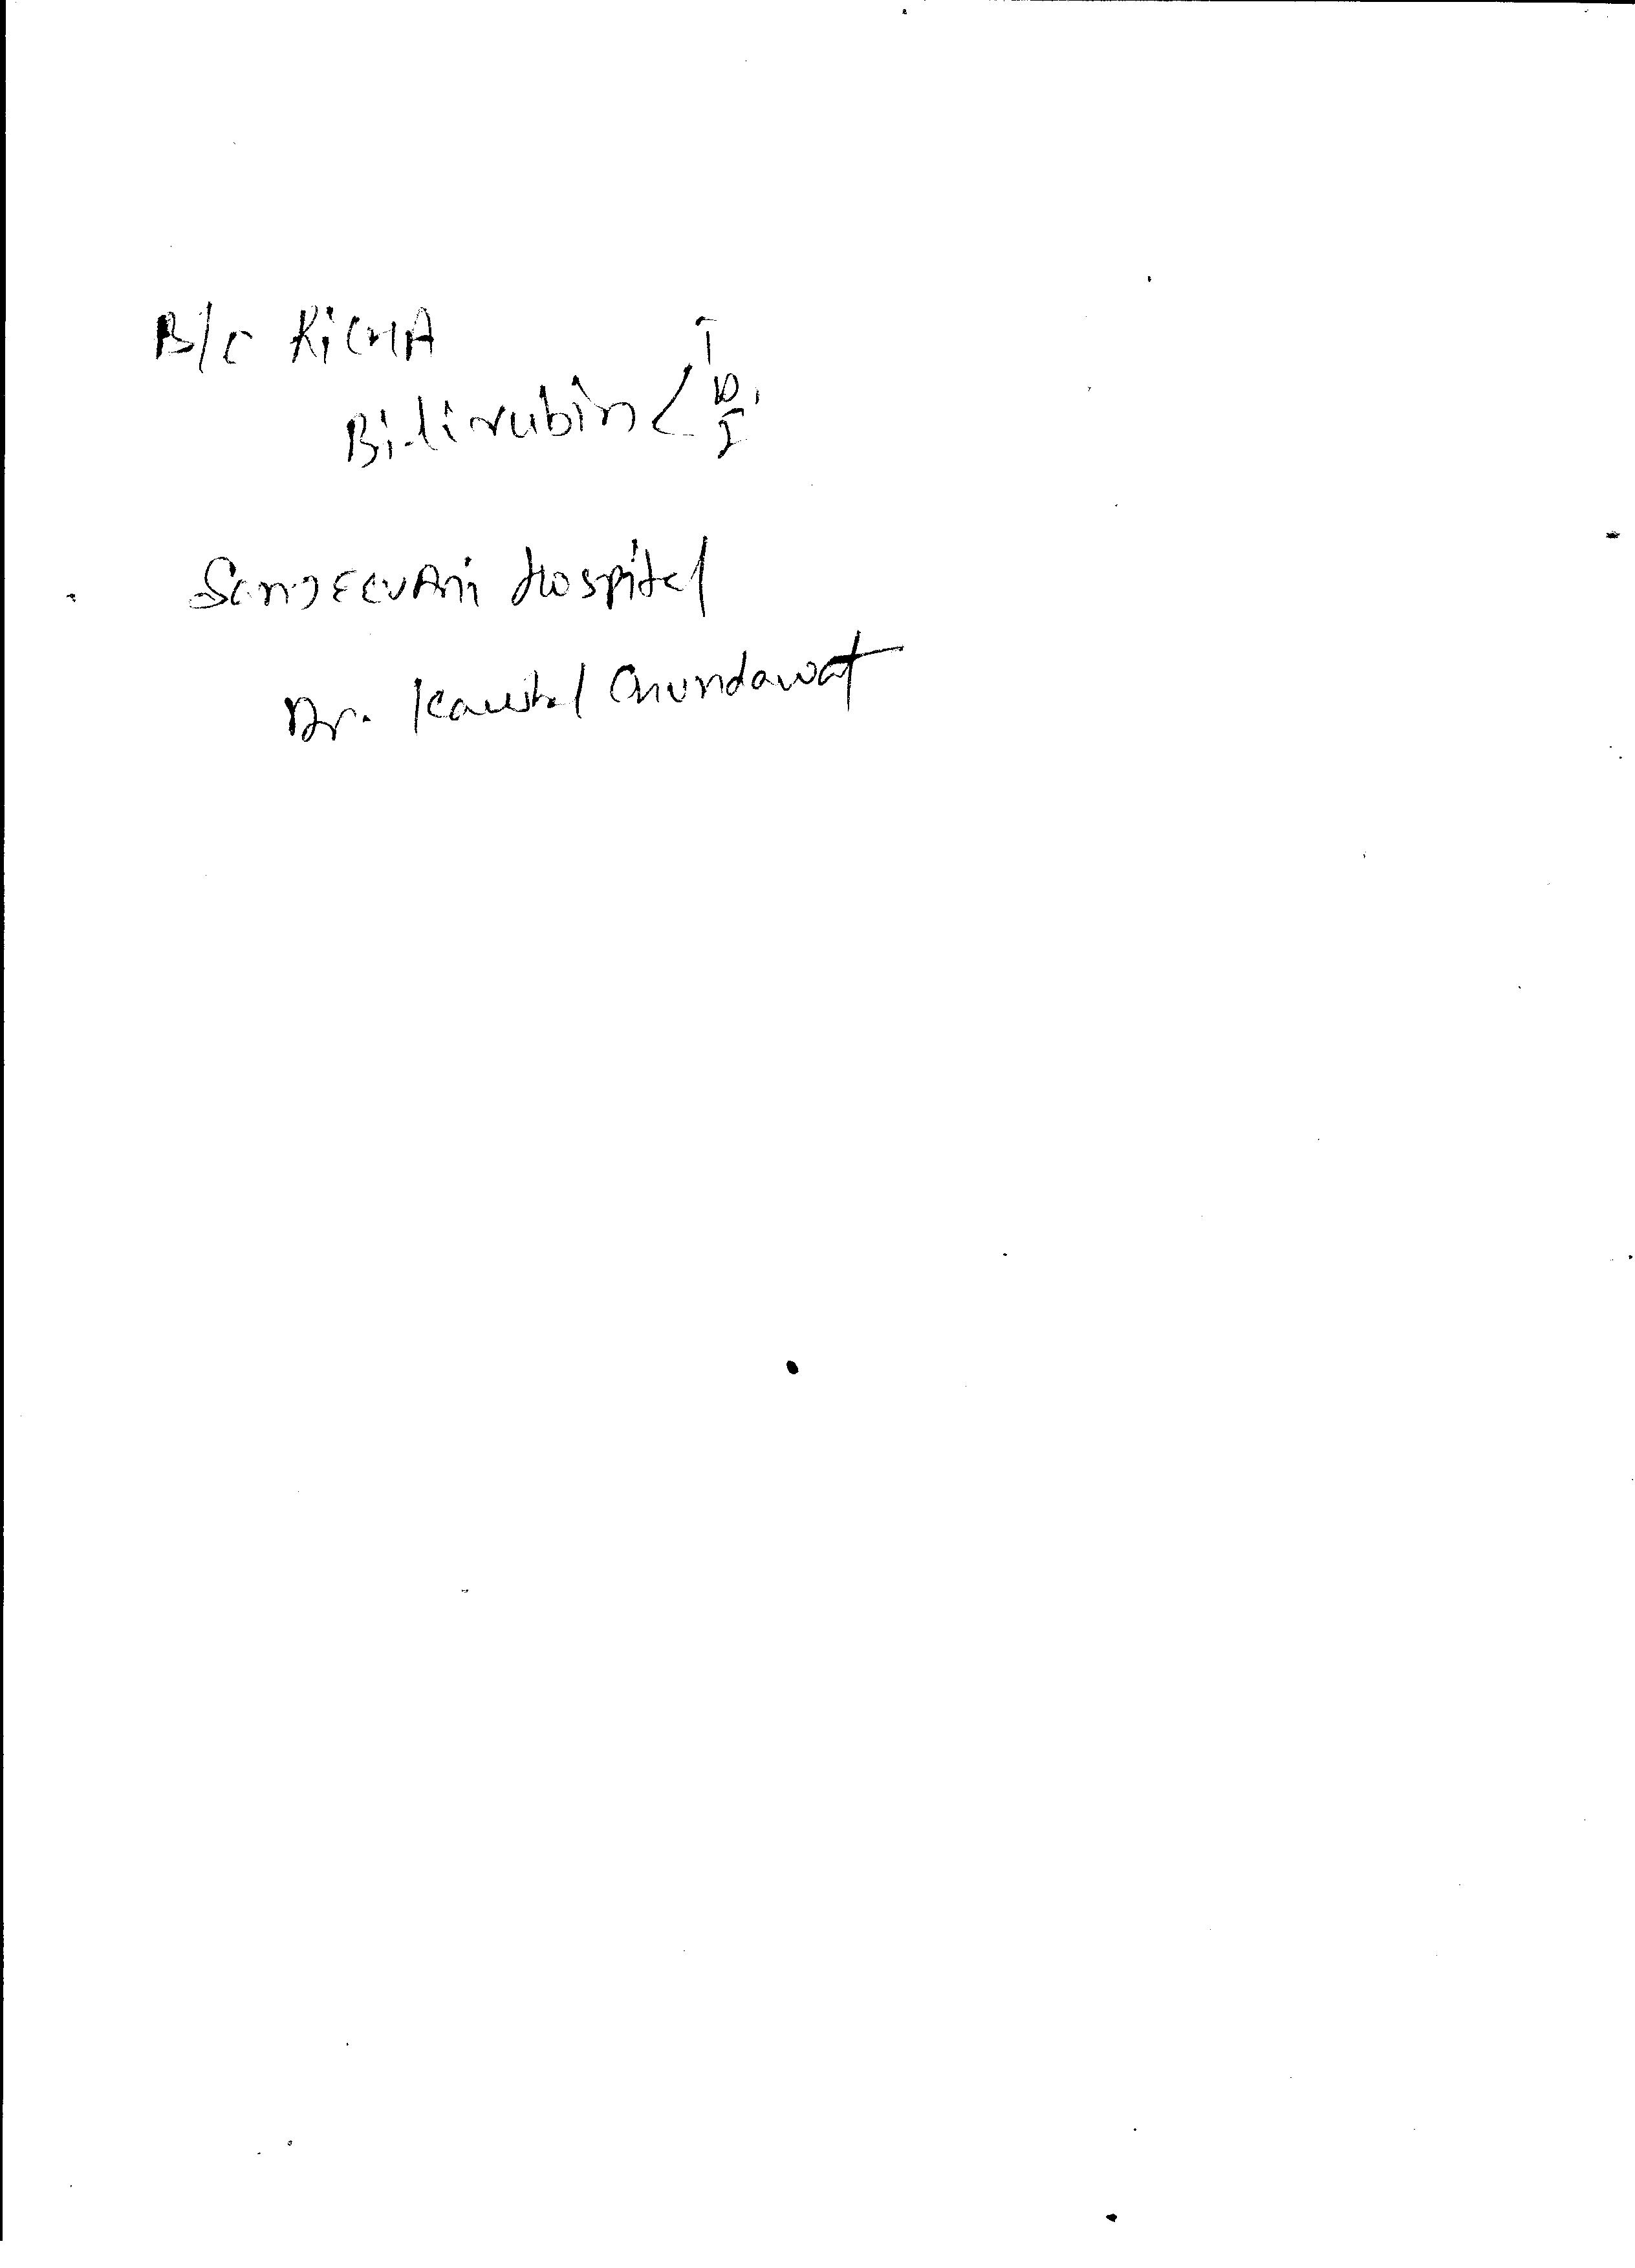 B/C RiCHA
T
Bilirubin < D
I
SanJEEVAni Hospital
Dr. Kaushal Chundawat